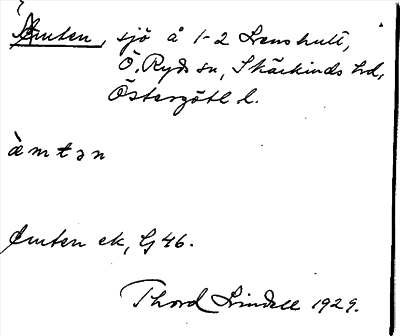 Ämten, sjö å 1-2 Svenshult,
Ö. Ryds sn, Skärkinds hd,
Östergötl l.
àmtən
Emten ek, G 46.
Thord Lindell 1929.